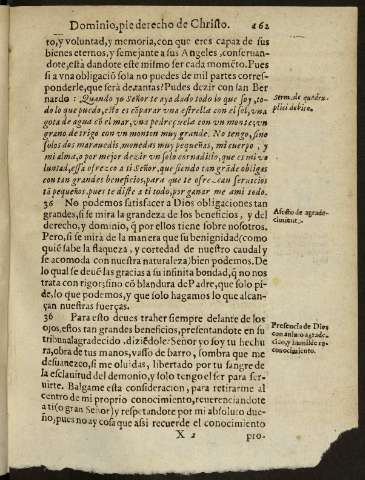 Dominio, y le derecho de Christo. 262
to, y voluntad, y memoria, con que eres capaz de sus
bienes eternos, y semejante a sus Angeles, conseruan-
dote, està dandote este mismo ser cada momẽto. Pues
si a vna obligaciõ sola no puedes de mil partes corres-
ponderle, que serà de tantas? Pudes dezir con san Ber
nardo: Quando yo Señor te aya dado todo lo que soy, to-
do lo que puedo, esto es cõparar vna estrella con el sol, vna
gota de agua cõ el mar, vna pedrezuela con vn monte, vn
grano de trigo con vn monton muy grande. No tengo, sino
solos dos marauedis, monedas muy pequeñas, mi cuerpo, y
mi alma, o por mejor dezir vn solo cornadillo, que es mi vo
luntad, essa ofrezco a ti Señor, que siendo tan grãde obligas
con tan grandes beneficios, para que te ofrezcan seruicios
tã pequeños, pues te diste a ti todo, por ganar me ami todo.
Serm. de quadru-
plici debito.
36 No podemos satisfacer a Dios obligaciones tan
grandes, si se mira la grandeza de los beneficios, y del
derecho, y dominio, q̃ por ellos tiene sobre nosotros.
Pero, si se mirà de la manera que su benignidad (como
quiẽ sabe la flaqueza, y cortedad de nuestro caudal y
se acomoda con nuestra naturaleza) bien podemos. De
lo qual se deuẽ las gracias a su infinita bondad, q̃ no nos
trata con rigor; sino cõ blandura de Padre, que solo pi-
de, lo que podemos, y que solo hagamos lo que alcan-
çan nuestras fuerças.
Afecto de agrade-
cimiento.
36 Para esto deues traher siempre delante de los
ojos, estos tan grandes beneficios, presentandote en su
tribunal agradecido, diziẽdole: Señor yo soy tu hechu
ra, obra de tus manos, vasso de barro, sombra que me
desuanezco, si me oluidas, libertado por tu sangre de
la esclauitud del demonio, y solo tengo el ser para ser-
uirte. Balgame esta consideracion, para retirarme al
centro de mi proprio conocimiento, reuerenciandote
a ti (o gran Señor) y respetandote por mi absoluto due-
ño, pues no ay cosa que assi recuerde el conocimiento
Presencia de Dios
con animo agrade-
cido, y humilde re-
conocimiento.
X 2 pro-